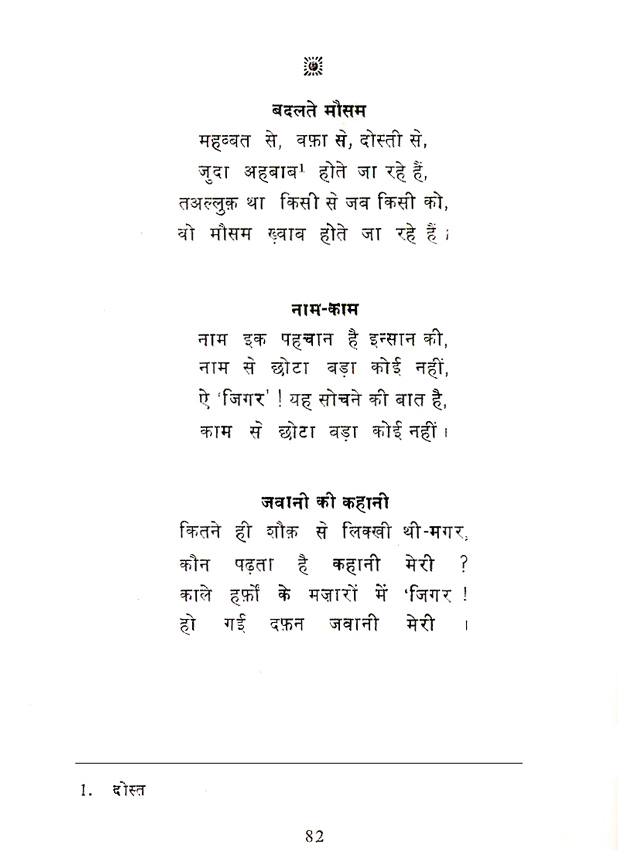 बदलते मौसम
महव्बत से, वफ़ा से, दोस्ती से,
जुदा अहबाब¹ होते जा रहे हैं,
तअल्लुक़ था किसी से जब किसी को,
वो मौसम ख़्वाब होते जा रहे हैं।
नाम-काम
नाम इक पहचान है इन्सान की,
नाम से छोटा बड़ा कोई नहीं,
ऐ 'जिगर' ! यह सोचने की बात है,
काम से छोटा बड़ा कोई नहीं।
जवानी की कहानी
कितने ही शौक़ से लिक्खी थी-मगर,
कौन पढ़ता है कहानी मेरी ?
काले हर्फ़ों के मज़ारों में 'जिगर !
हो गई दफ़न जवानी मेरी ।
1. दोस्त
82